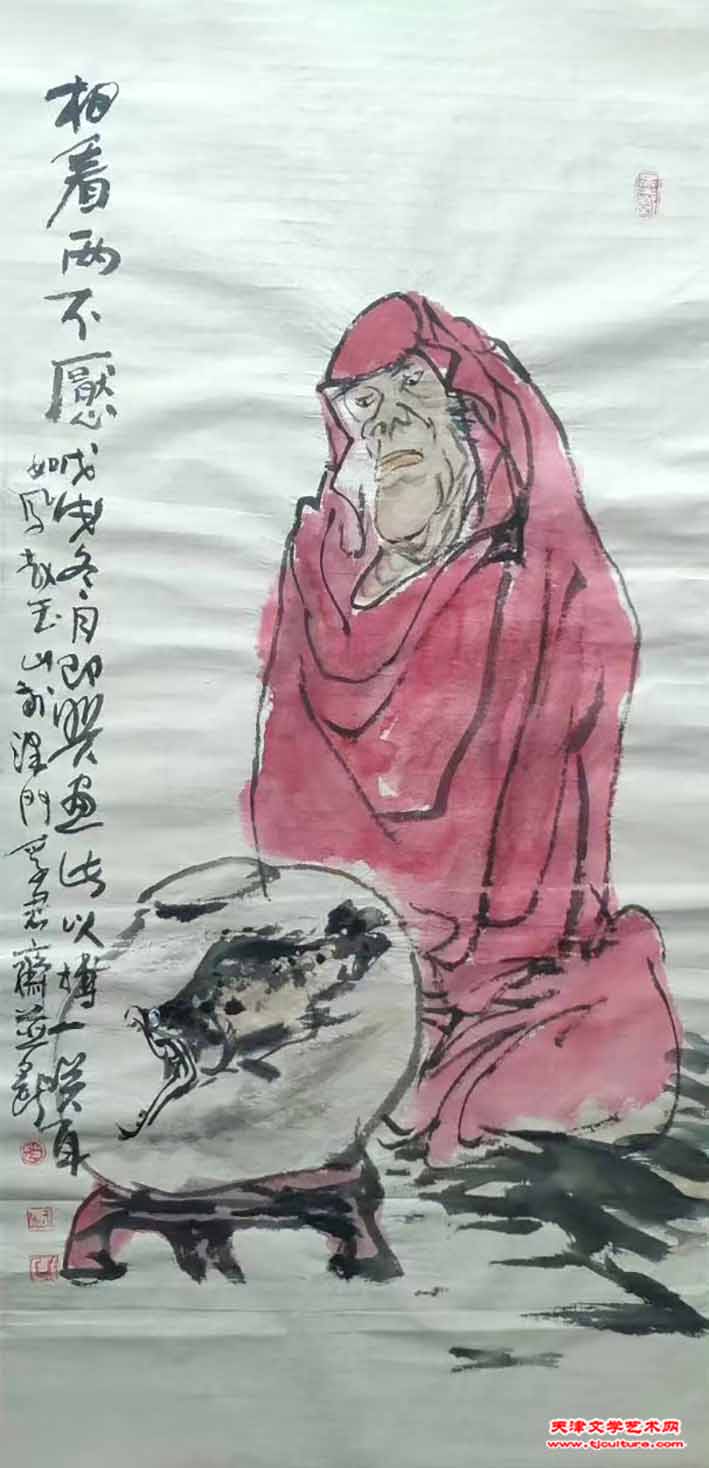 相看两不懕
戊戌冬月即興画此以博一笑耳
玉山津門齋
天津文学艺术网
www.tjculture.com